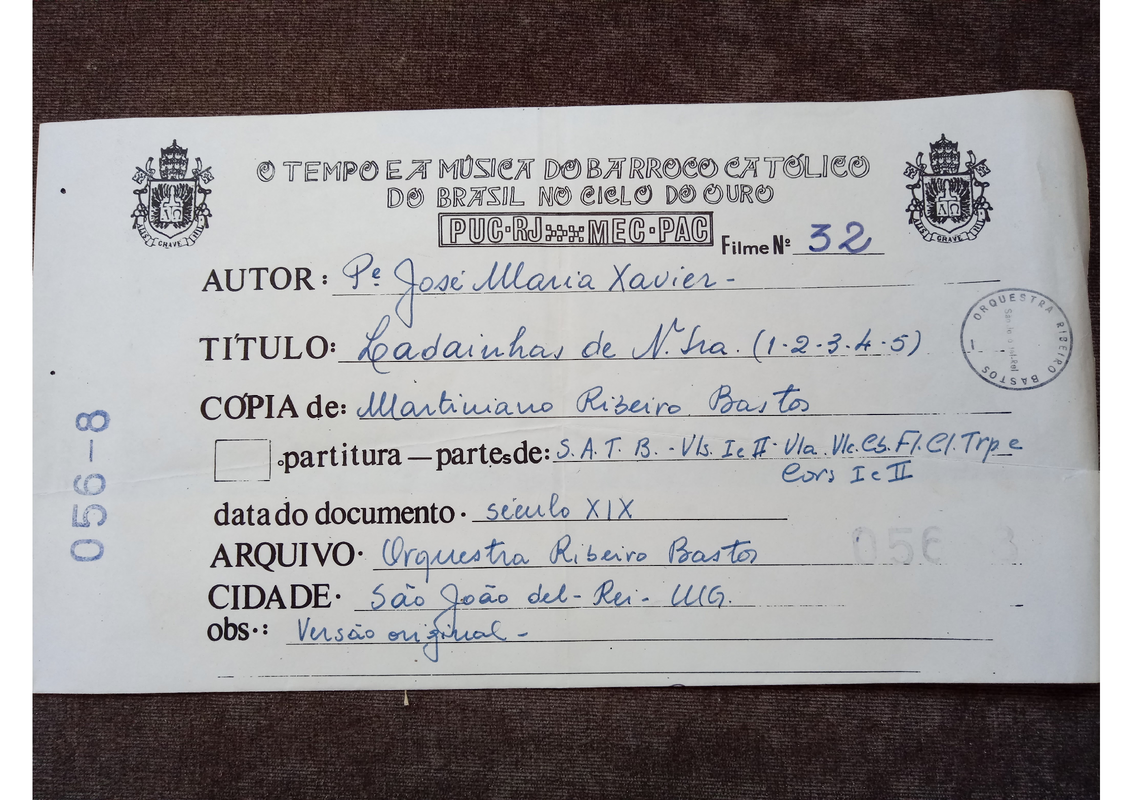 O TEMPO E A MÚSICA DO BARROCO CATÓLICO
DO BRASIL NO CICLO DO OURO
PUC·RJ MEC·PAC
Filme Nº 32
AUTOR: Pe José Maria Xavier -
TÍTULO: Ladainhas de N. Sra. (1-2-3-4-5)
ORQUESTRA RIBEIRO BASTOS
CÓPIA de: Martiniano Ribeiro Bastos
partitura — partes de: S.A.T.B. - Vls. I e II - Vla. Vlc. Cb. Fl. Cl. Trp e
Cors I e II
data do documento· século XIX
ARQUIVO· Orquestra Ribeiro Bastos
CIDADE· São João del-Rei - MG.
obs·: Versão original -
056-8
056 8
GRAVE
GRAVE